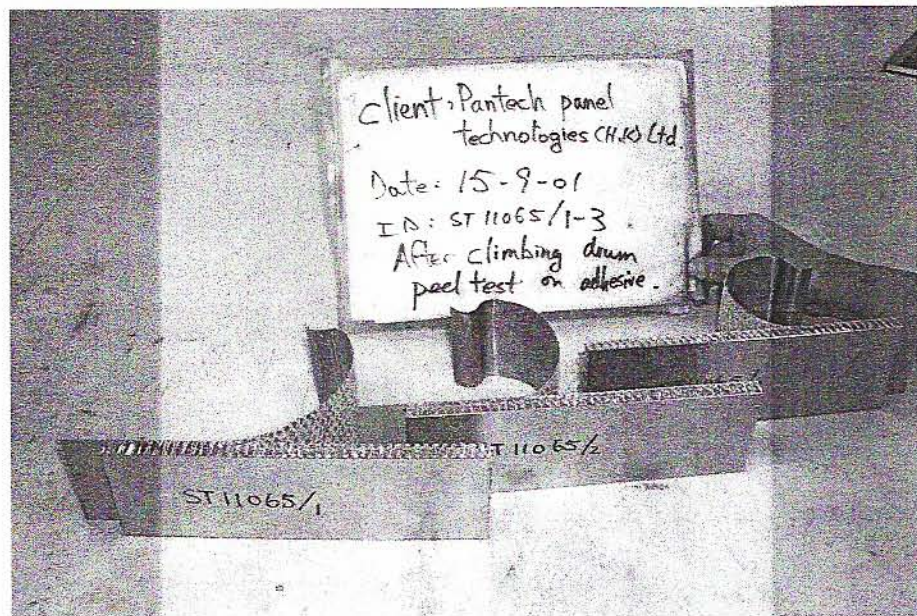 Client: Pantech panel
technologies (H.K) Ltd.
Date: 15-9-01
ID: ST 11065/1-3
After climbing drum
peel test on adhesive.
T 11065/2
ST 11065/1